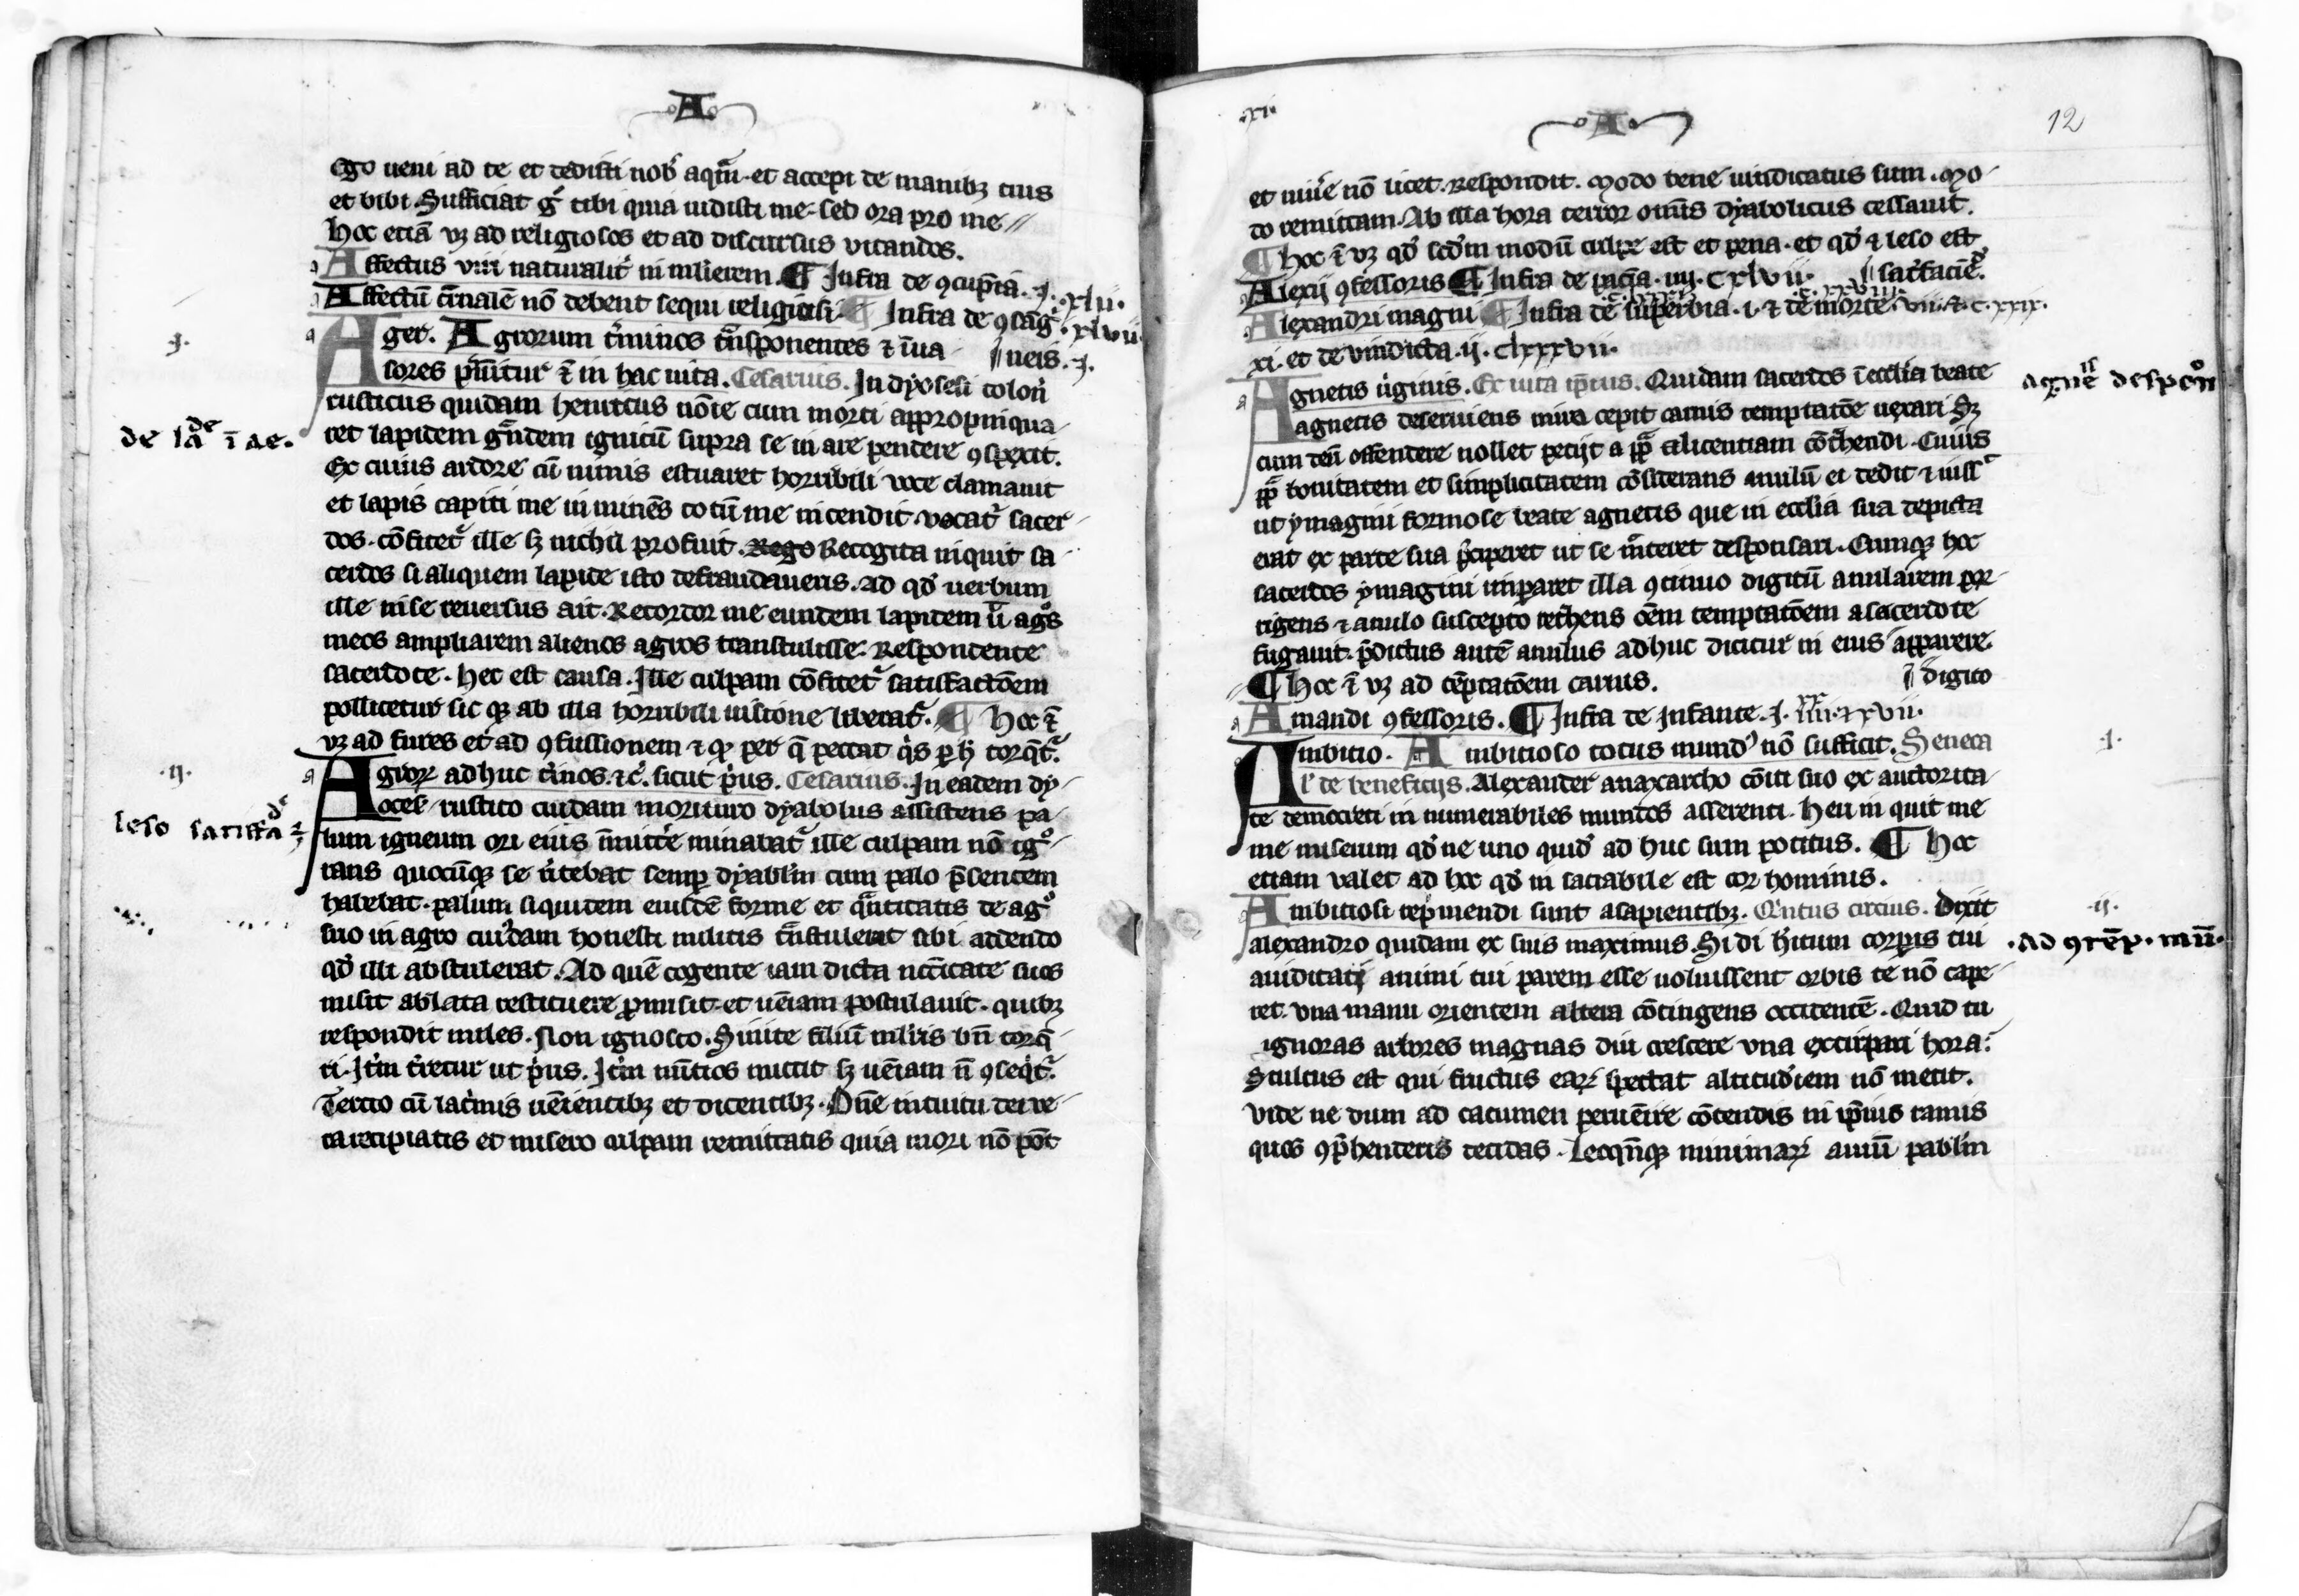 A
ego ueni ad te et dedisti nob̾ aquā. et accepi de manibꝫ tuis
et bibi. Sufficiat gͦ tibi quia uidisti me. sed ora pro me //
hoc etiā uꝫ ad religiosos et ad discursus uitandos.
Affectus viri naturalit̾ in mulierem. ¶ Infra de ꝯcupia. J. xlii.
Affectū carnalē nō debent sequi religiosi. ¶ Infra de ꝯsāg. xlvii
.J.
Ager. Agrorum t̾minos tͣnsponentes ⁊ īua // neis. J.
sores puniūtur ēt in hac uita. Cesarius. In dyocesi colon̄
rusticus quidam henricus nōie cum morti appropinqua-
de lade ī ae.
ret lapidem gͣndem ignitū supra se in aere pendere ꝯspexit.
Ex cuius ardore cū nimis estuaret horribili uoce clamauit
et lapis capiti me inminēs totū me incendit. vocatͬ sacer-
dos. cōfitetͬ ille sꝫ nichil profuit. Rego Recogita inquit sa-
cerdos si aliquem lapide isto defraudaueris. Ad qd̾ uerbum
ille in se reuersus ait. Recordor me eundem lapidem ut agͦs
meos ampliarem alienos agros transtulisse. Respondente
sacerdote. hec est causa. Ille culpam cōfitetͬ satisfactōem
pollicetur sicqꝫ ab illa horribili uisione liberatͬ. ¶ Hoc ēt
uꝫ ad fures et ad ꝯfussionem ⁊ qꝫ per q̄ peccat qͥs p̱ hꝫ torqͥtͬ.
.ij.
Agroꝝ adhuc t̾minos. ⁊c̾. sicut pͥus. Cesarius. In eadem dy-
ocesi. rustico cuidam morituro dyabolus assistens pa-
leso satisfa
lum igneum ori eius īmitt̾e minabatͬ ille culpam nō igͦ-
rans quocūqꝫ se u̾tebat semꝑ dyablm̄ cum palo p̄sentem
habebat. palum siquidem eiusdē forme et qͣntitatis de agͦ
suo in agro cuidam honesti militis tͣnstulerat sibi addendo
qd̾ illi abstulerat. Ad quē cogente iam dicta nccitate suos
misit ablata restituere ꝓmisit. et uēiam postulauit. quibꝫ
respondit miles. Non ignosco. Sinite filiū mlīris bn̄ torq̄-
ri. Itm̄ t̾retur ut pͥus. Itm̄ nūtios mittit sꝫ uēiam n̄ ꝯseqͥtͬ.
Tertio cū lacͥmis uēientibꝫ et dicentibꝫ. Dn̄e intuitu dei re-
ta recipiatis et misero culpam remittatis quia mori nō pōt
.xi.
A
12
et uiu̾e nō licet. Respondit. Modo bene uindicatus sum. Mo-
do remittam. Ab illa hora terror omīs dyabolicus cessauit.
¶ hoc ēt uꝫ qd̾ scd̾m modū culpe est et pena. et qd̾ ⁊ leso est
Alexii ꝯfessoris ¶ Infra de paciā. iiij. cxlvii. // satͥfaciēd̾.
Alexandri magni ¶ Infra de superbia. i. ⁊ de morte. vii. ⁊. c. xxix.
xi. et de vindicta. ij. clxxxvii.
Agnetis u̾ginis. Ex uita ip̄ius. Quidam sacerdos ī ecclīa beate
agnē despōn
agnetis deseruiens mira cepit carnis temptatōe uexari. Sꝫ
cum deū offendere nollet petijt a pͣpa licentiam cōtͣhendi. Cuius
pͣpa bonitatem et simplicitatem cōsiderans anulū ei dedit ⁊ iuss̾
ut ymagini formose beate agnetis que in ecclīa sua depicta
erat ex parte sua pͥciperet ut se ꝑmitteret desponsari. Cumqꝫ hoc
sacerdos ymagini imꝑaret illa ꝯtinuo digitū anularem por-
rigens ⁊ anulo suscepto retͣhens ōem temptatōem a sacerdote
fugauit. pͥdictus autē anulus adhuc dicitur in eius apparere.
¶ hoc ēt uꝫ ad tēptatōem carnis. // digito
Amandi ꝯfessoris. ¶ Infra de Infante. J. ⁊ xvii.
.J.
Ambitio. Ambitioso totus mundꝰ nō sufficit. Seneca
l̾ de beneficijs. Alexander anaxarcho cōiti suo ex auctorita-
te democriti innumerabiles mundos asserenti. Heu inquit me
me miserum qd̾ ne uno quid̾ adhuc sum potitus. ¶ Hoc
etiam valet ad hoc qd̾ insaciabile est cor hominis.
.ij.
Ambitiosi rep̾mendi sunt a sapientibꝫ. Qͥntus curcius. Dixit
.Ad ꝯtēp. mū.
alexandro quidam ex suis maximus. Si di hītum corꝑis tui
auiditati animi tui parem esse uoluissent orbis te nō cape-
ret. una manu orientem altera cōtingens occidentē. Quid tu
ignoras arbores magnas diu crescere una extirpari hora.
Stultus est qui fructus eaꝝ spectat altitud̾iem nō metit.
vide ne dum ad cacumen peruēire cōtendis in ip̄ius ramis
quos ꝯp̄henderis decidas. Leoqn̄qꝫ minimaꝝ auiū pablm̄